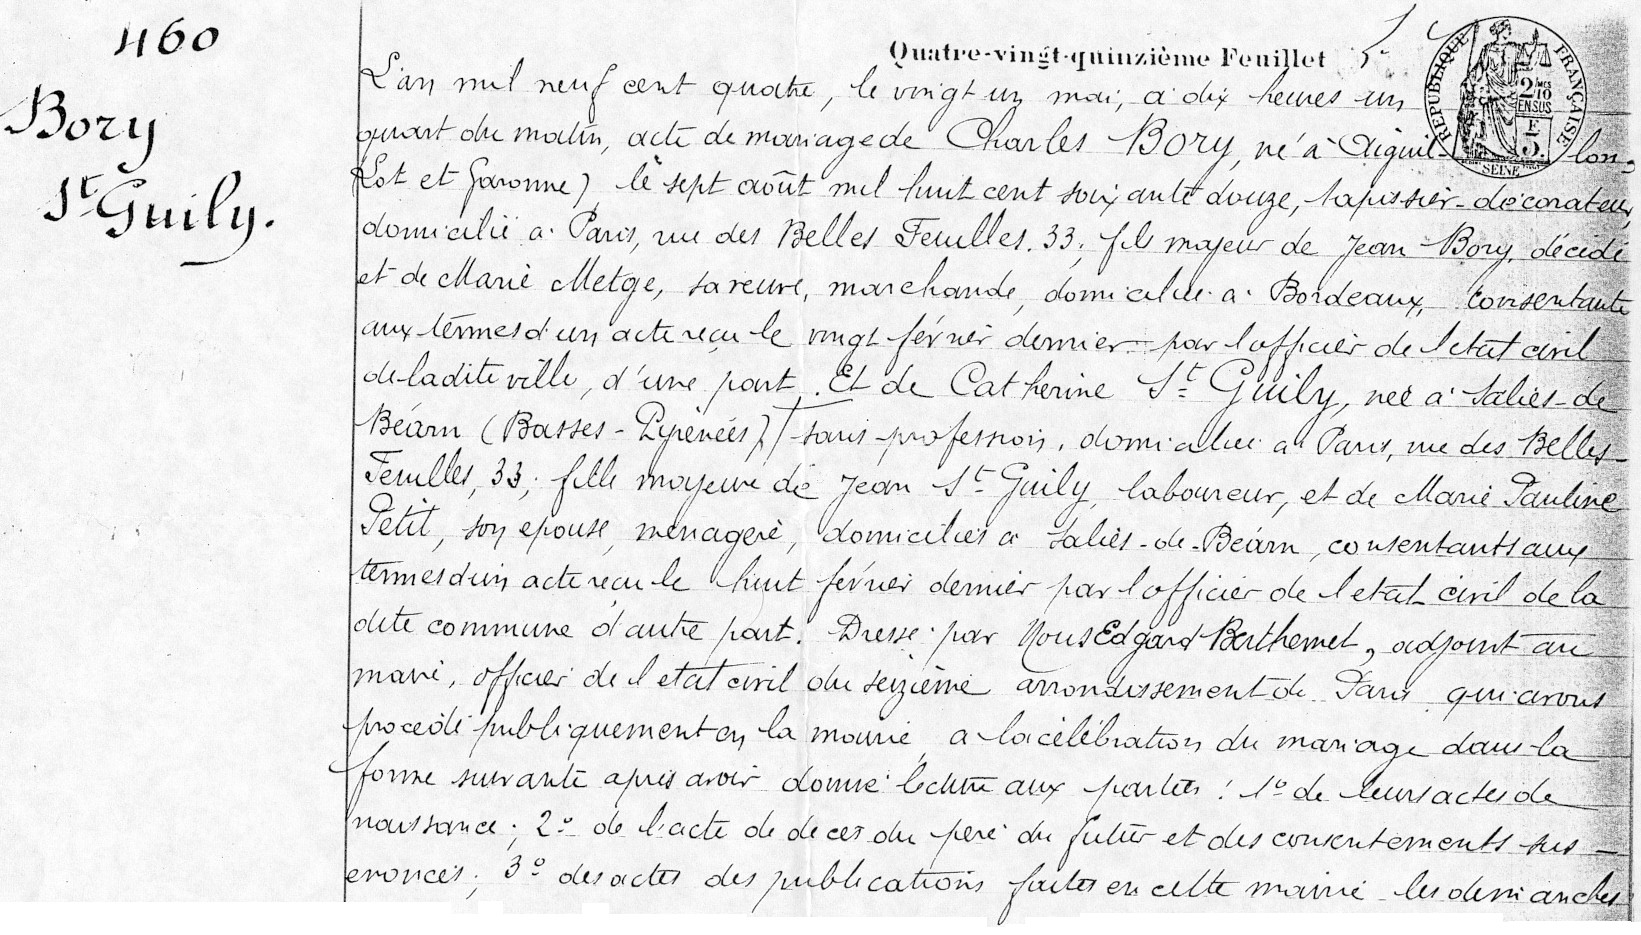 460
Bory
St Guily.
Quatre-vingt-quinzième Feuillet
RÉPUBLIQUE FRANÇAISE
2/10
EN SUS
SEINE
L'an mil neuf cent quatre, le vingt un mai, à dix heures un
quart du matin, acte de mariage de Charles Bory, né à Aiguil-lon,
(Lot et Garonne) le sept août mil huit cent soixante douze, tapissier-décorateur,
domicilié à Paris, rue des Belles Feuilles, 33; fils majeur de Jean Bory, décédé
et de Marie Metge, sa veuve, marchande, domiciliée à Bordeaux, consentante
aux termes d'un acte reçu le vingt février dernier par l'officier de l'état civil
de la dite ville, d'une part. Et de Catherine St Guily, née à Salies-de
Béarn (Basses-Pyrénées) sans profession, domiciliée à Paris, rue des Belles-
Feuilles, 33; fille majeure de Jean St Guily, laboureur, et de Marie Pauline
Petit, son épouse, ménagère, domiciliés à Salies-de-Béarn, consentants aux
termes d'un acte reçu le huit février dernier par l'officier de l'état civil de la
dite commune d'autre part. Dressé par Nous Edgard Berthemet, adjoint au
maire, officier de l'état civil du seizième arrondissement de Paris qui avons
procédé publiquement en la mairie à la célébration du mariage dans la
forme suivante après avoir donné lecture aux parties: 1º de leurs actes de
naissance; 2º de l'acte de décès du père du futur et des consentements sus-
énoncés; 3º des actes des publications faites en cette mairie les dimanches